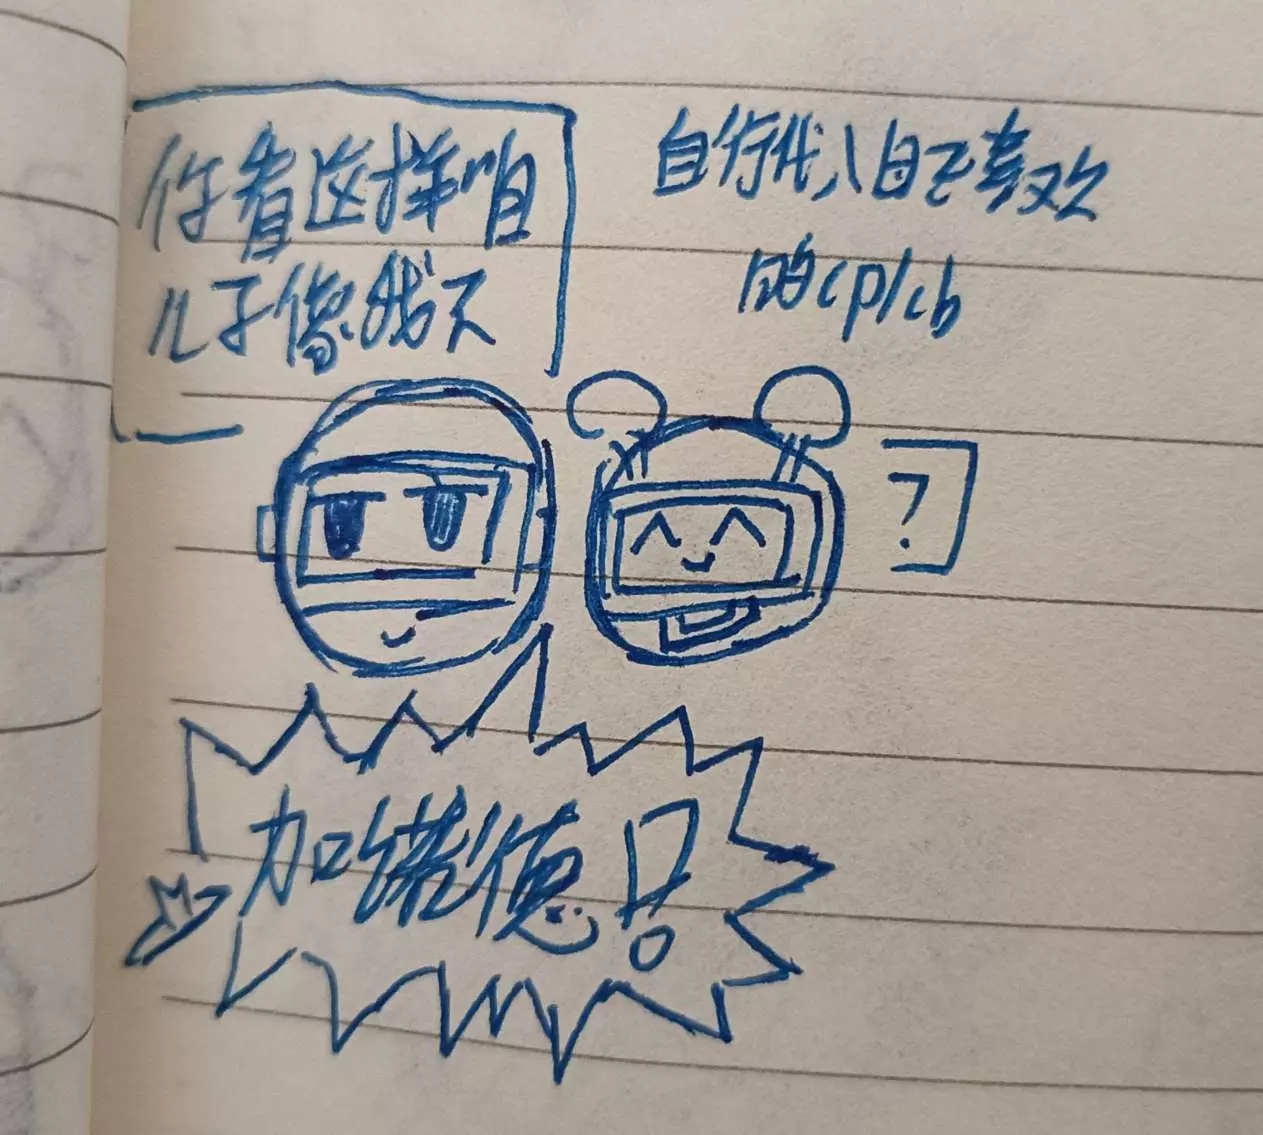 你看这样咱
儿子像我不
自行代入自己喜欢
的cp/cb
?
加诺德!